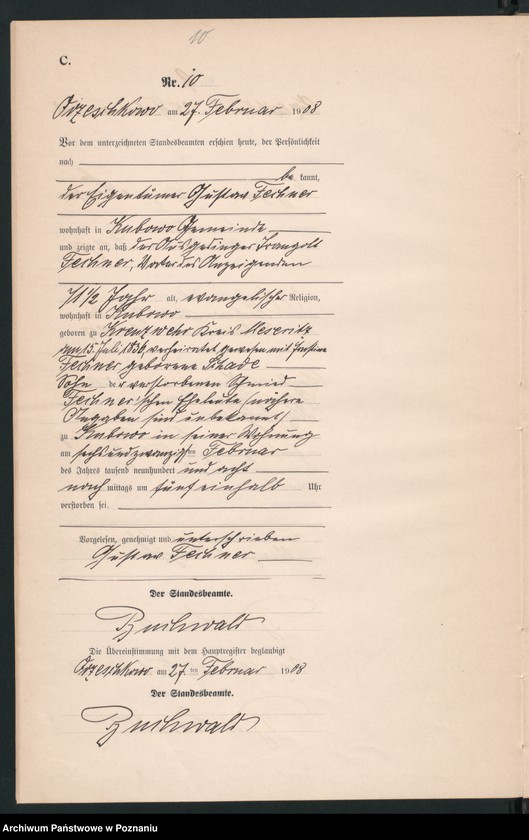 10
C.
Nr. 10
Orzeschkowo am 27. Februar 1908
Vor dem unterzeichneten Standesbeamten erschien heute, der Persönlichkeit
nach
be kannt,
der Eigentümer Gustav Fechner
wohnhaft in Kubowo Gemeinde
und zeigte an, daß der Ausgedinger
Fechner, Vater des Anzeigenden
71 1/2 Jahr alt, evangelischer Religion,
wohnhaft in Kubowo
geboren zu Kreuzwehr Kreis Meseritz
am 15. Juli 1836, verheiratet gewesen mit
Fechner geborene
Sohn der verstorbenen Schmied
Fechner'schen Eheleute (nähere
Angaben sind unbekannt)
zu Kubowo in seiner Wohnung
am sechsundzwanzigsten Februar
des Jahres tausend neunhundert und acht
nach mittags um fünfeinhalb Uhr
verstorben sei.
Vorgelesen, genehmigt und unterschrieben
Gustav Fechner
Der Standesbeamte.
Buchwald
Die Übereinstimmung mit dem Hauptregister beglaubigt
Orzeschkowo am 27. ten Februar 1908
Der Standesbeamte.
Buchwald
Archiwum Państwowe w Poznaniu